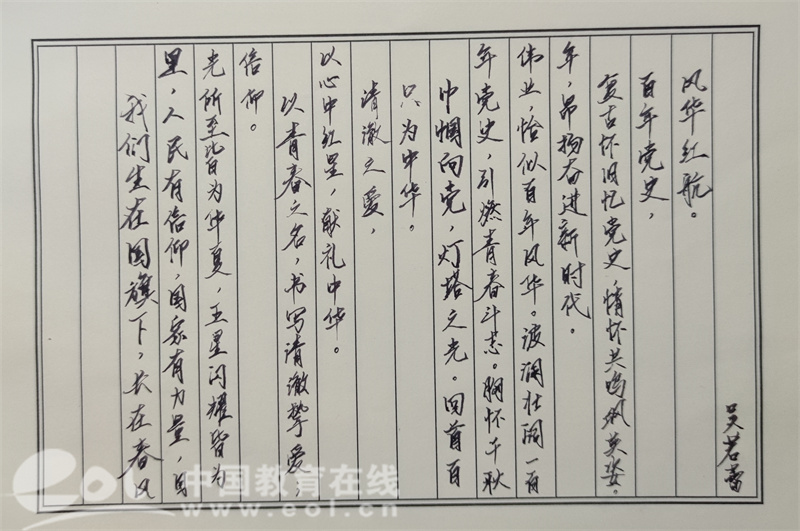 我们生在国旗下，长在春风
里，人民有信仰，国家有力量，目
光所至皆为华夏，五星闪耀皆为
信仰。
以青春之名，书写清澈挚爱，
以心中红星，献礼中华。
清澈之爱，
只为中华。
巾帼向党，灯塔之光。回首百
年党史，引燃青春斗志。胸怀千秋
伟业，恰似百年风华。波澜壮阔一百
年，昂扬奋进新时代。
复古怀旧忆党史，情怀共鸣飒英姿。
百年党史，
风华红航。
吴若蕾
eol 中国教育在线
www.eol.cn